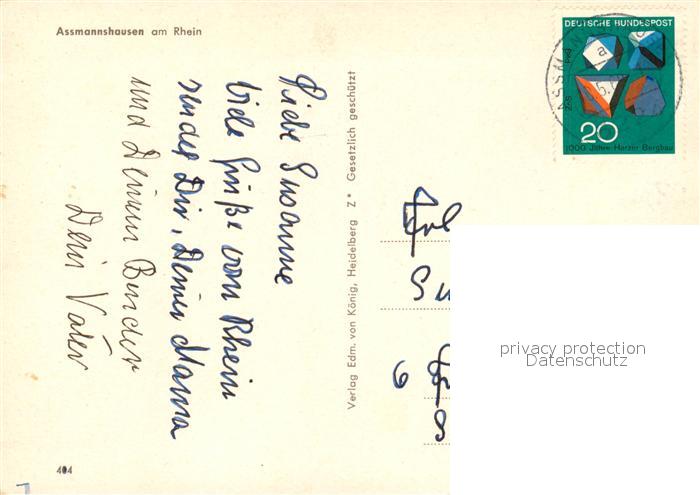 Assmannshausen am Rhein
Liebe Susanne
viele Grüße vom Rhein
sendet Dir, Deiner Mama
und Deinem Bruder
Dein Vater
Verlag Edm. von König, Heidelberg Z* Gesetzlich geschützt
404
DEUTSCHE BUNDESPOST
20
1000 Jahre Harzer Bergbau
Frl
Su
6
privacy protection
Datenschutz